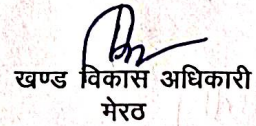 खण्ड विकास अधिकारी
मेरठ